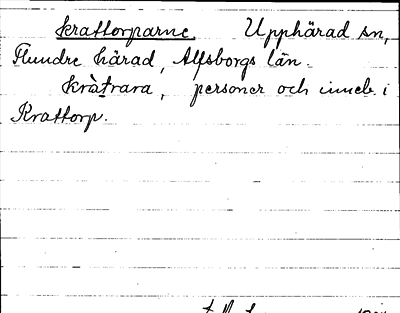 krattorparne Upphärad sn,
Flundre härad, Älfsborgs län.
kràtrara, personer och inneb. i
Krattorp.